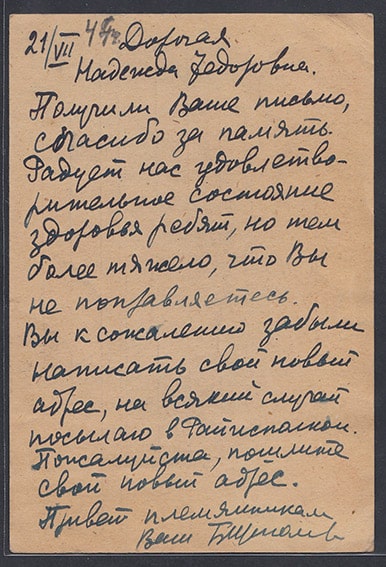 21/VII 44г. Дорогая
Надежда Федоровна.
Получили Ваше письмо,
спасибо за память.
Радует нас удовлетво-
рительное состояние
здоровья ребят, но тем
более тяжело, что Вы
не поправляетесь.
Вы к сожалению забыли
написать свой новый
адрес, на всякий случай
посылаю в Райисполком.
Пожалуйста, пошлите
свой новый адрес.
Привет племянникам
Ваш